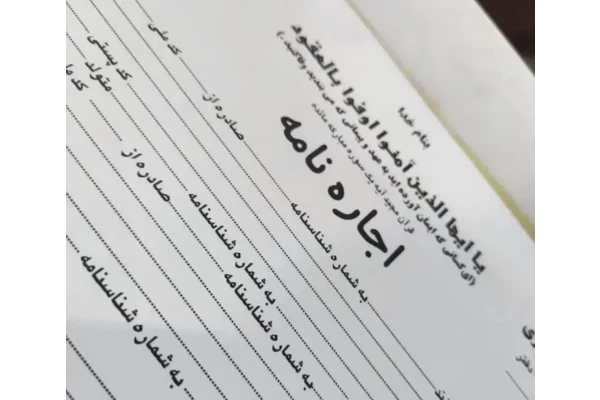 بنام خدا
یا ایها الذین آمنوا اوفوا بالعقود
(ای کسانی که ایمان آورده اید به عهد و پیمانی که می بندید وفا کنید.)
قرآن مجید آیه یک سوره مبارکه مائده
اجاره نامه
به شماره شناسنامه صادره از کد ملی
به شماره شناسنامه صادره از کد پستی
به شماره شناسنامه متولد
به شماره شناسنامه